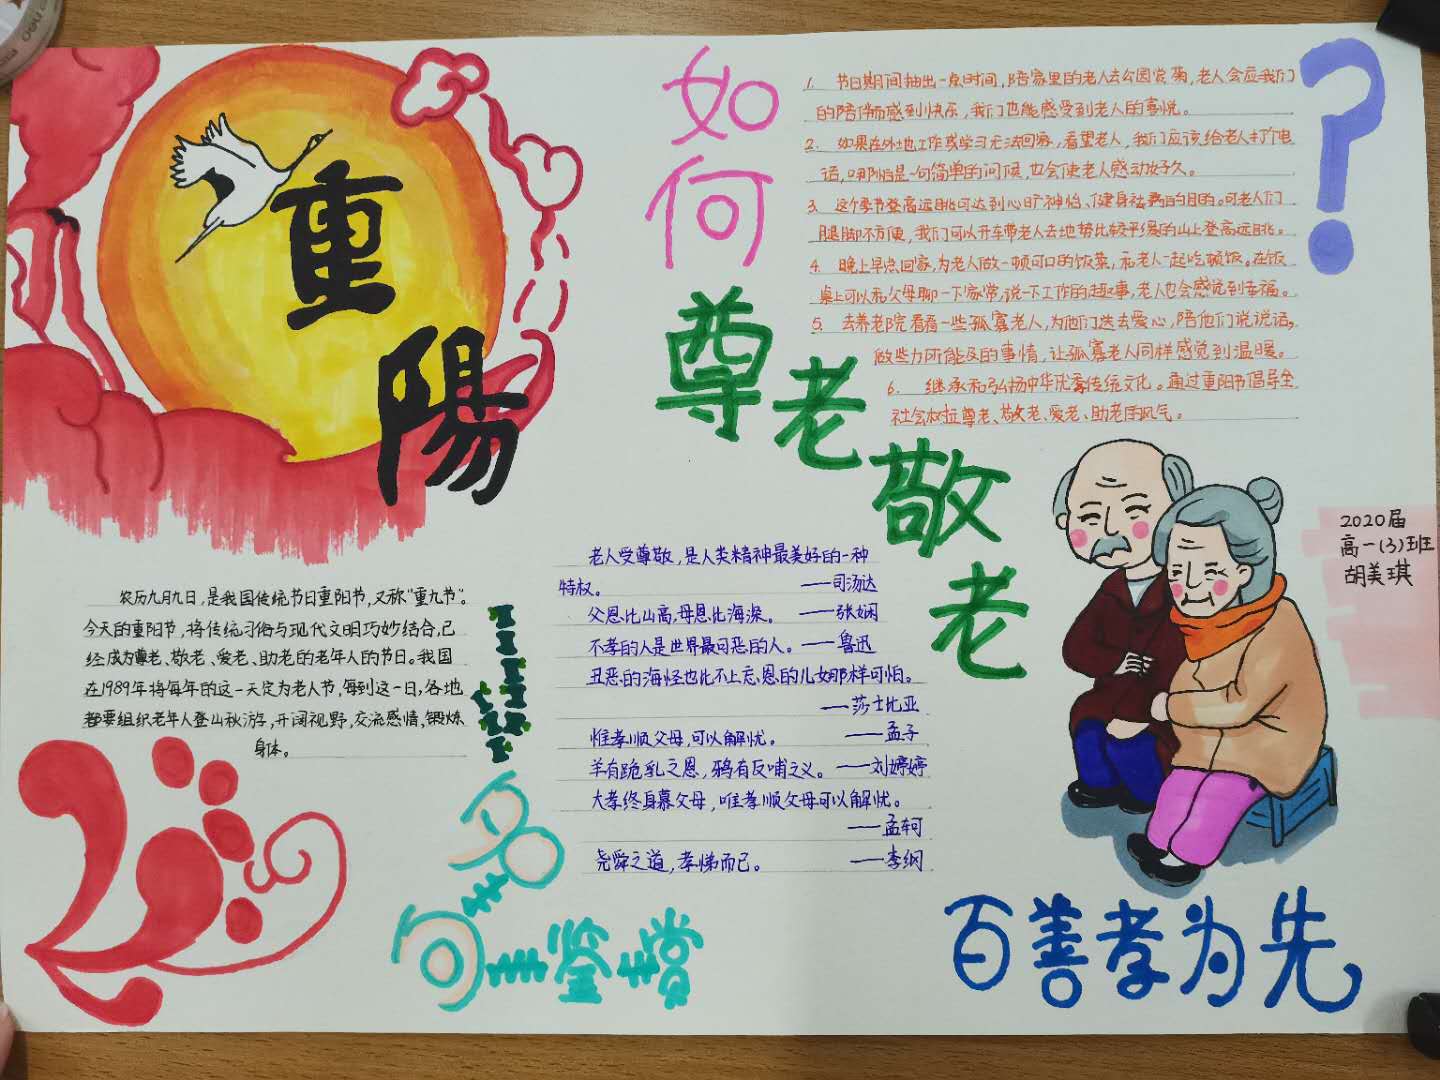 重
陽
如
何
尊
老
敬
老
?
1. 节日期间抽出一点时间,陪家里的老人去公园赏菊,老人会应我们
的陪伴而感到快乐,我们也能感受到老人的喜悦。
2. 如果在外地工作或学习无法回家,看望老人,我们应该给老人打个电
话,哪怕是一句简单的问候,也会使老人感动好久。
3. 这个季节登高远眺可达到心旷神怡、健身祛病的目的。可老人们
腿脚不方便,我们可以开车带老人去地势比较平缓的山上登高远眺。
4. 晚上早点回家,为老人做一顿可口的饭菜,和老人一起吃顿饭。在饭
桌上可以和父母聊一下家常,说一下工作的趣事,老人也会感觉到幸福。
5. 去养老院看看一些孤寡老人,为他们送去爱心,陪他们说说话,
做些力所能及的事情,让孤寡老人同样感觉到温暖。
6. 继承和弘扬中华优秀传统文化。通过重阳节倡导全
社会树立尊老、敬老、爱老、助老的风气。
2020届
高一(3)班
胡美琪
农历九月九日,是我国传统节日重阳节,又称“重九节”。
今天的重阳节,将传统习俗与现代文明巧妙结合,已
经成为尊老、敬老、爱老、助老的老年人的节日。我国
在1989年将每年的这一天定为老人节,每到这一日,各地
都要组织老年人登山秋游,开阔视野,交流感情,锻炼
身体。
老人受尊敬,是人类精神最美好的一种
特权。 ——司汤达
父恩比山高,母恩比海深。 ——张娴
不孝的人是世界最可恶的人。——鲁迅
丑恶的海怪也比不上忘恩的儿女那样可怕。
——莎士比亚
惟孝顺父母,可以解忧。 ——孟子
羊有跪乳之恩,鸦有反哺之义。——刘婷婷
大孝终身慕父母,唯孝顺父母可以解忧。
——孟轲
尧舜之道,孝悌而已。 ——李纲
名
句鉴赏
百善孝为先